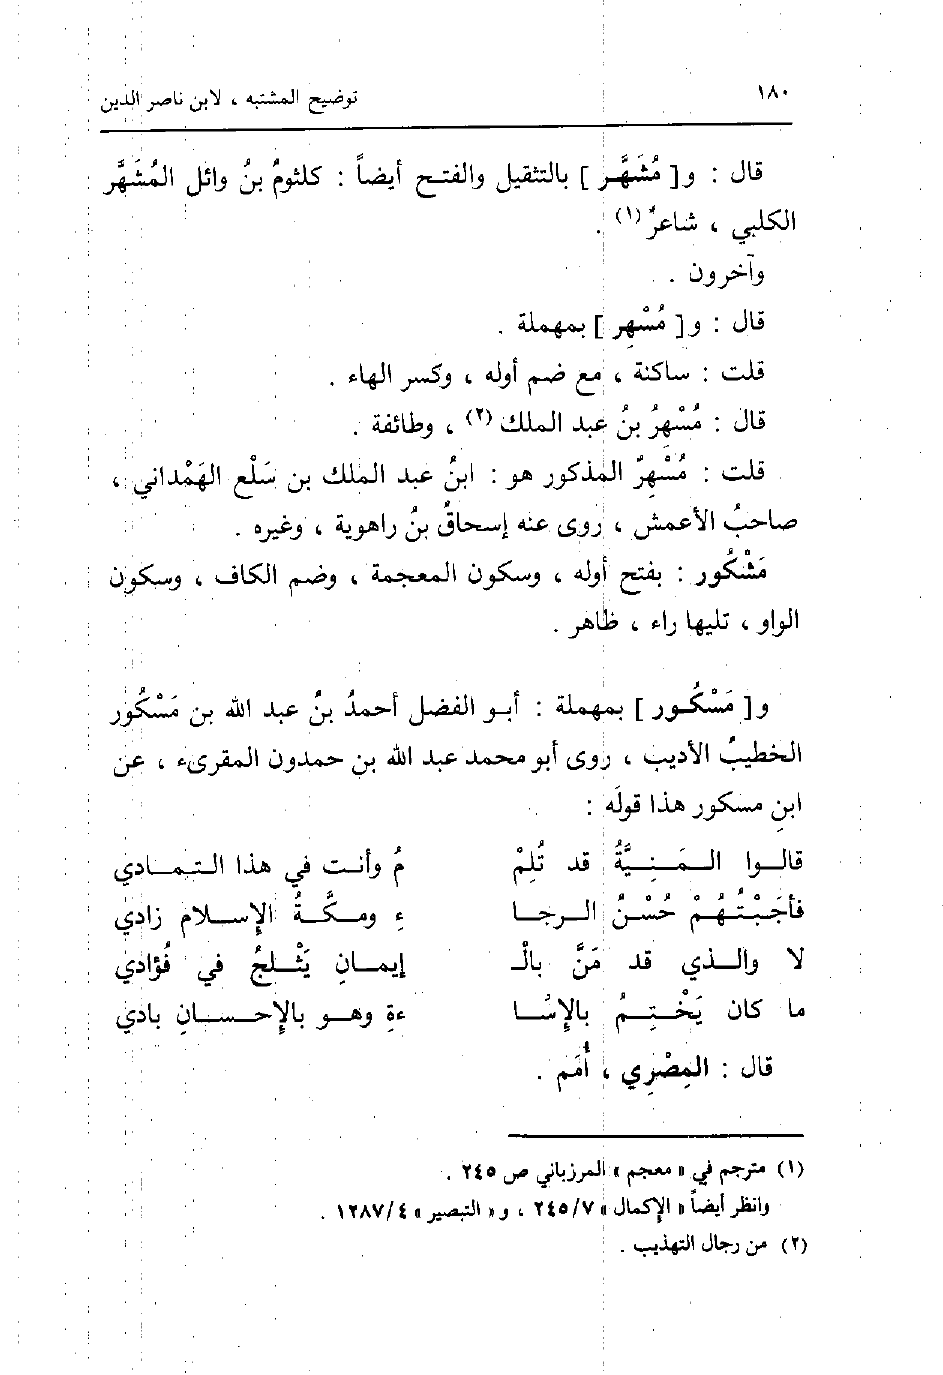 ١٨٠ توضيح المشتبه ، لابن ناصر الدين
قال : و[ مُشَهَّر ] بالتثقيل والفتح أيضاً : كلثومُ بنُ وائل المُشَهَّر
الكلبي ، شاعرٌ (١) .
وآخرون .
قال : و[ مُسْهِر ] بمهملة .
قلت : ساكنة ، مع ضم أوله ، وكسر الهاء .
قال : مُسْهِرُ بنُ عبد الملك (٢) ، وطائفة .
قلت : مُسْهِرٌ المذكور هو : ابنُ عبد الملك بن سَلْع الهَمْداني ،
صاحبُ الأعمش ، روى عنه إسحاقُ بنُ راهوية ، وغيره .
مَشْكُور : بفتح أوله ، وسكون المعجمة ، وضم الكاف ، وسكون
الواو ، تليها راء ، ظاهر .
و[ مَسْكُور ] بمهملة : أبو الفضل أحمدُ بنُ عبد الله بن مَسْكُور
الخطيبُ الأديب ، روى أبو محمد عبد الله بن حمدون المقرىء ، عن
ابنِ مسكور هذا قولَه :
قالوا المَنِيَّةُ قد تُلِمْ مُ وأنت في هذا التمادي
فأجَبْتُهُمْ حُسْنُ الرجا ءِ ومكَّةُ الإسلام زادي
لا والذي قد مَنَّ بالْـ إيمانِ يَثْلجُ في فُؤادي
ما كان يَخْتِمُ بالإسُا ءةِ وهو بالإحسانِ بادي
قال : المِصْرِي ، أُمَم .
(١) مترجم في « معجم » المرزباني ص ٢٤٥ .
وانظر أيضاً « الإكمال » ٢٤٥/٧ ، و« التبصير » ١٢٨٧/٤ .
(٢) من رجال التهذيب .